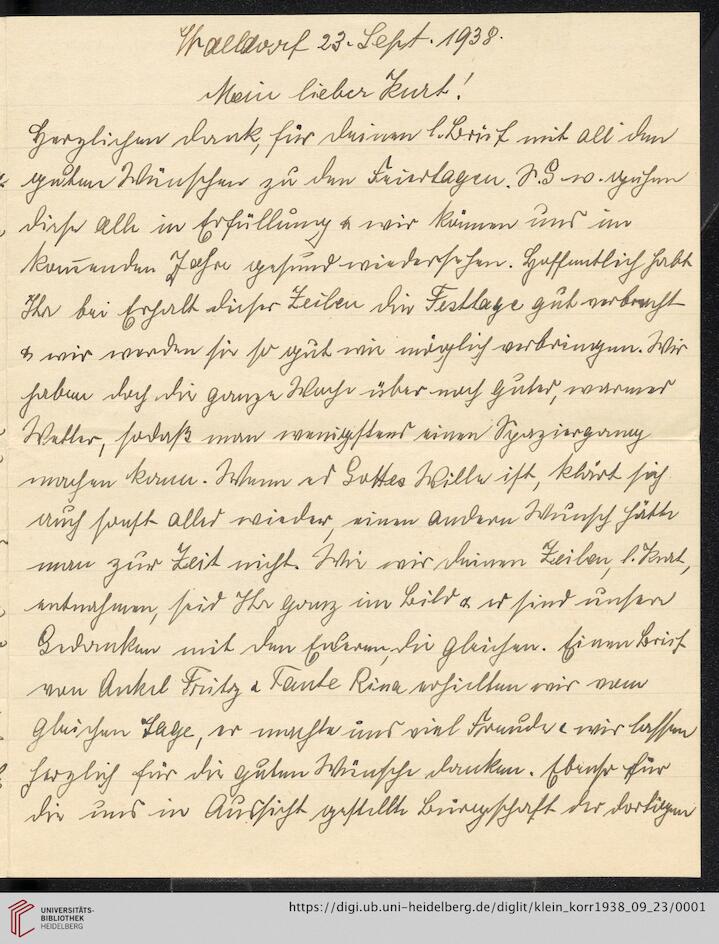 Walldorf 23. Sept. 1938.
Mein lieber Kurt!
Herzlichen Dank, für Deinen l. Brief mit all den
guten Wünschen zu den Feiertagen. S. G. w. gehen
diese alle in Erfüllung & wir können uns im
kommenden Jahre gesund wiedersehen. Hoffentlich habt
Ihr bei Erhalt dieser Zeilen die Festtage gut verbracht
& wir werden sie so gut wie möglich verbringen. Wir
haben doch die ganze Woche über noch gutes, warmes
Wetter, sodaß man wenigstens einen Spaziergang
machen kann. Wenn es Gottes Wille ist, klärt sich
auch sonst alles wieder, einen andern Wunsch hätte
man zur Zeit nicht. Wie wir Deinen Zeilen, l. Kurt,
entnahmen, seid Ihr ganz im Bild & es sind unsere
Gedanken mit den Eueren, die gleichen. Einen Brief
von Onkel Fritz & Tante Rina erhielten wir vom
gleichen Tage, er machte uns viel Freude & wir lassen
herzlich für die guten Wünsche danken. Ebenso für
die uns in Aussicht gestellte Bürgschaft der dortigen
UNIVERSITÄTS-
BIBLIOTHEK
HEIDELBERG
https://digi.ub.uni-heidelberg.de/diglit/klein_korr1938_09_23/0001